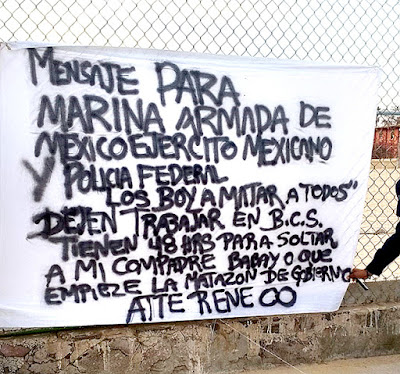 MENSAJE PARA
MARINA ARMADA DE
MEXICO EJERCITO MEXICANO
Y POLICIA FEDERAL
LOS BOY A MATAR A TODOS"
DEJEN TRABAJAR EN B.C.S.
TIENEN 48 HRS PARA SOLTAR
A MI COMPADRE BABAY O QUE
EMPIEZE LA MATAZON DE GOBIERNO
ATTE RENE OO